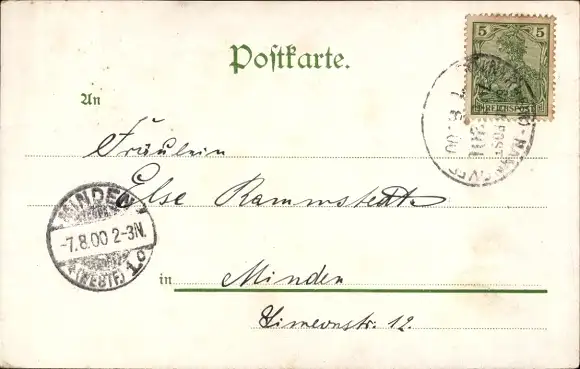 Postkarte.
5 5
REICHSPOST
An
Fräulein
Else Rammstedt
MINDEN
-7.8.00 2-3N.
*(WESTF) 1.o
in Minden
Simeonstr. 12.